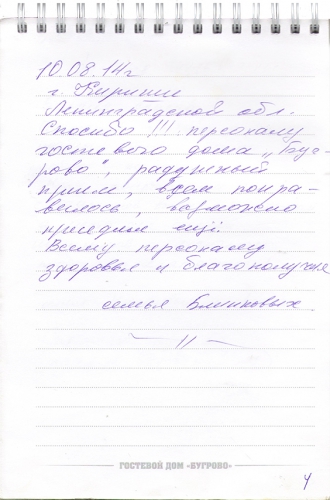 10.08.14г
г. Кириши
Ленинградской обл.
Спасибо !!! персоналу
гостевого дома „Буг-
рово", радушный
прием, всем понра-
вилось, возможно
приедем ещё.
Всему персоналу
здоровья и благополучия
семья Блинковых
— 11 —
ГОСТЕВОЙ ДОМ «БУГРОВО»
4